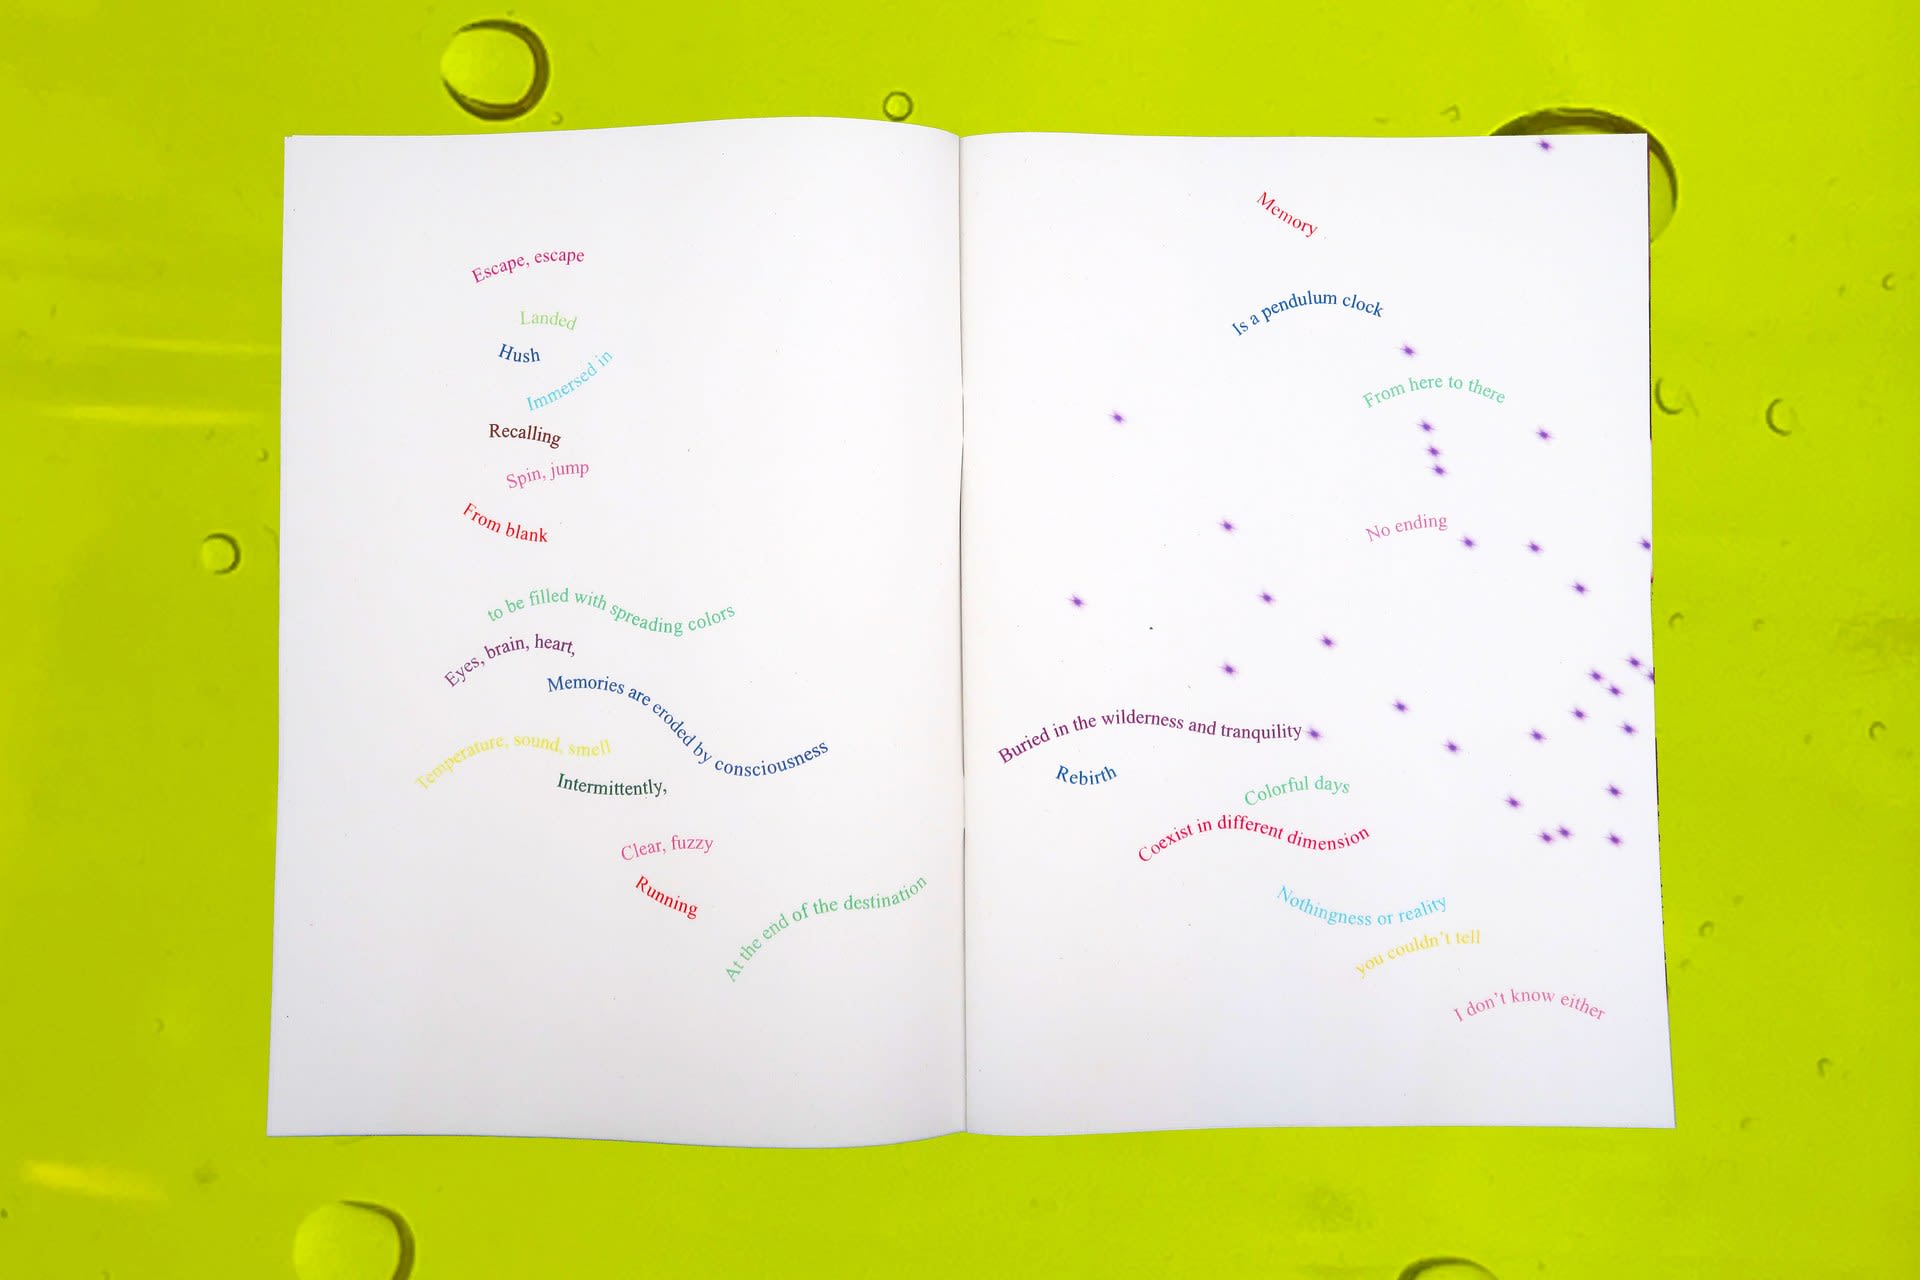 Escape, escape
Landed
Hush
Immersed in
Recalling
Spin, jump
From blank
to be filled with spreading colors
Eyes, brain, heart,
Memories are eroded by consciousness
Temperature, sound, smell
Intermittently,
Clear, fuzzy
Running
At the end of the destination
Memory
Is a pendulum clock
From here to there
No ending
Buried in the wilderness and tranquility
Rebirth
Colorful days
Coexist in different dimension
Nothingness or reality
you couldn’t tell
I don’t know either